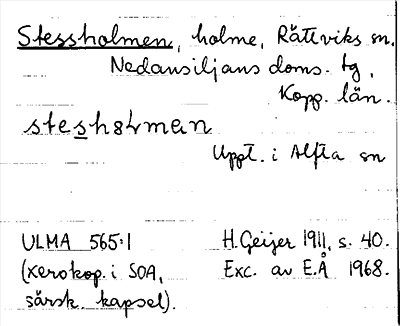 Stessholmen, holme, Rättviks sn,
Nedansiljans doms. tg,
Kopp. län.
stesholman
Uppt. i Alfta sn
ULMA 565:1 H. Geijer 1911, s. 40.
(xerokop. i SOA, Exc. av E.Å 1968.
särsk. kapsel).